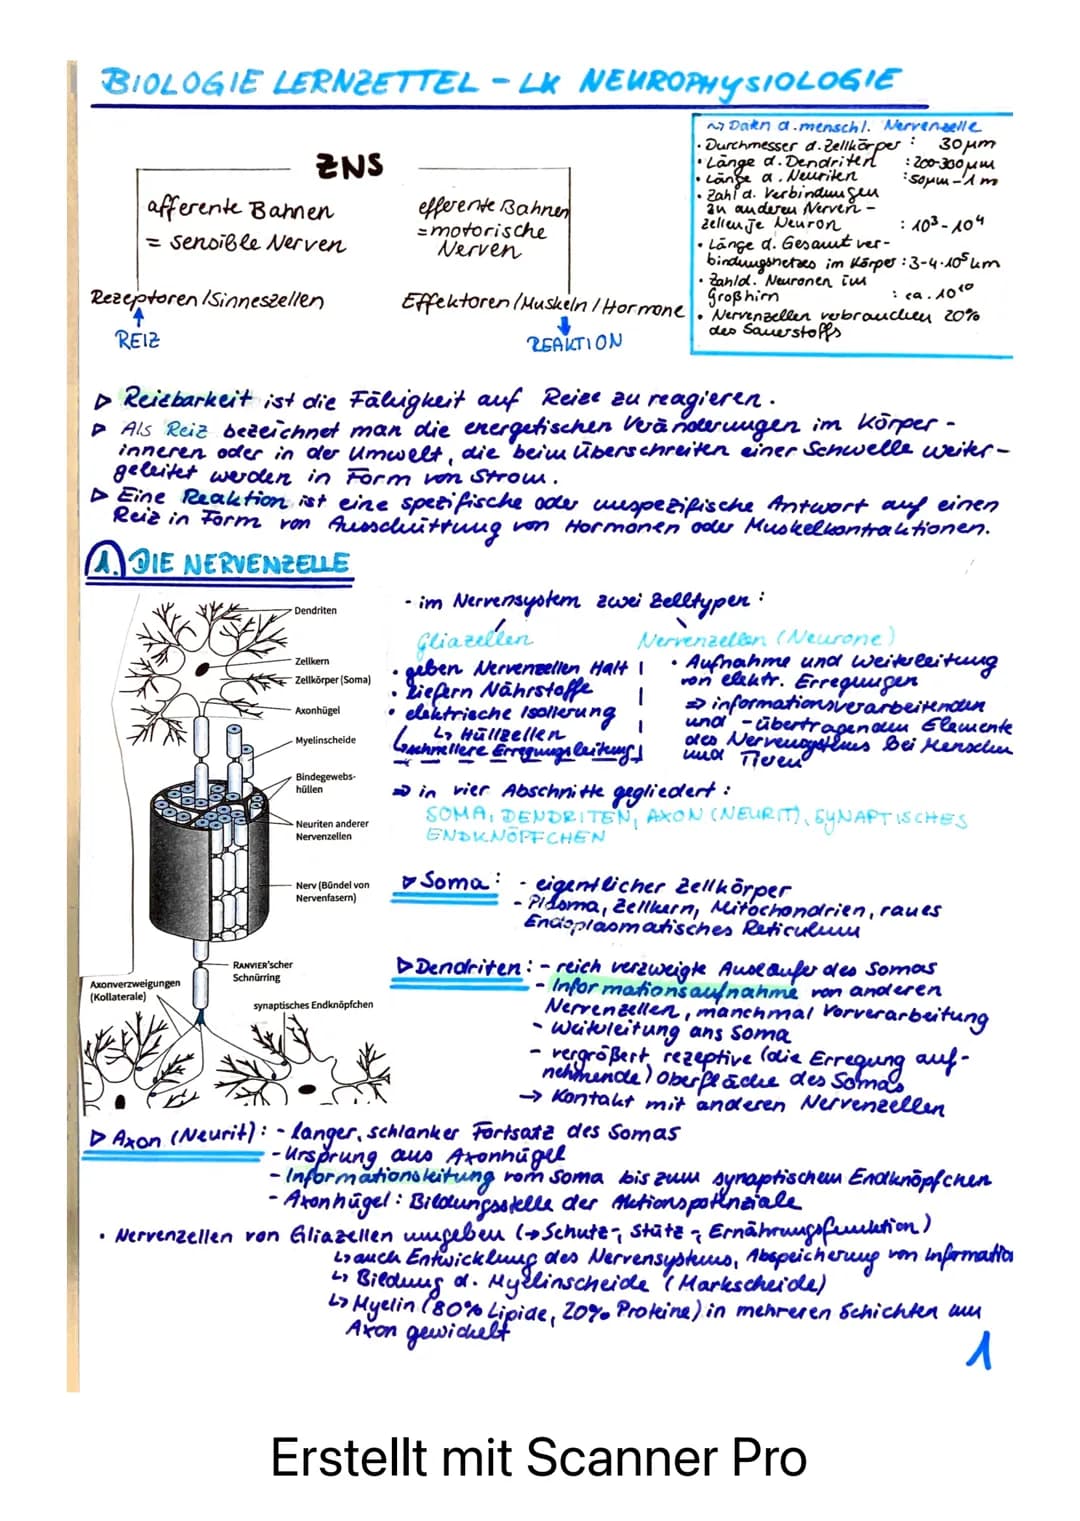 BIOLOGIE LERNZETTEL - LK NEUROPHYSIOLOGIE
ZNS
afferente Bahnen
= sensible Nerven
efferente Bahnen
= motorische
Nerven
Rezeptoren / Sinneszellen
Effektoren / Muskeln / Hormone
REIZ
REAKTION
~> Daten d. menschl. Nervenzelle
• Durchmesser d. Zellkörper : 30 µm
• Länge d. Dendriten : 200-300 µm
• Länge d. Neuriten : 50µm - 1 m
• Zahl d. Verbindungen
zu anderen Nerven-
zellen je Neuron : 10³ - 10⁴
• Länge d. Gesamtver-
bindungsnetzes im Körper : 3-4·10⁵ km
• Zahl d. Neuronen im
Großhirn : ca. 10¹⁰
• Nervenzellen verbrauchen 20%
des Sauerstoffs
▷ Reizbarkeit ist die Fähigkeit auf Reize zu reagieren.
▷ Als Reiz bezeichnet man die energetischen Veränderungen im Körper-
inneren oder in der Umwelt, die beim Überschreiten einer Schwelle weiter-
geleitet werden in Form von Strom.
▷ Eine Reaktion ist eine spezifische oder unspezifische Antwort auf einen
Reiz in Form von Ausschüttung von Hormonen oder Muskelkontraktionen.
1. DIE NERVENZELLE
Dendriten
Zellkern
Zellkörper (Soma)
Axonhügel
Myelinscheide
Bindegewebs-
hüllen
Neuriten anderer
Nervenzellen
Nerv (Bündel von
Nervenfasern)
RANVIER'scher
Schnürring
Axonverzweigungen
(Kollaterale)
synaptisches Endknöpfchen
- im Nervensystem zwei Zelltypen :
Gliazellen
• geben Nervenzellen Halt
• liefern Nährstoffe
• elektrische Isolierung
↳ Hüllzellen
↳ schnellere Erregungsleitung
Nervenzellen (Neurone)
• Aufnahme und Weiterleitung
von elektr. Erregungen
⇒ informationsverarbeitenden
und -übertragenden Elemente
des Nervensystems bei Menschen
und Tieren
⇒ in vier Abschnitte gegliedert :
SOMA, DENDRITEN, AXON (NEURIT), SYNAPTISCHES
ENDKNÖPFCHEN
▷ Soma : - eigentlicher Zellkörper
- Plasma, Zellkern, Mitochondrien, raues
Endoplasmatisches Reticulum
▷ Dendriten : - reich verzweigte Ausläufer des Somas
- Informationsaufnahme von anderen
Nervenzellen, manchmal Vorverarbeitung
- Weiterleitung ans Soma
- vergrößert rezeptive (die Erregung auf-
nehmende) Oberfläche des Somas
→ Kontakt mit anderen Nervenzellen
▷ Axon (Neurit) : - langer, schlanker Fortsatz des Somas
- Ursprung aus Axonhügel
- Informationsleitung vom Soma bis zum synaptischen Endknöpfchen
- Axonhügel : Bildungsstelle der Aktionspotenziale
• Nervenzellen von Gliazellen umgeben (→ Schutz-, Stütz-, Ernährungsfunktion)
↳ auch Entwicklung des Nervensystems, Abspeicherung von Informatio
↳ Bildung d. Myelinscheide (Markscheide)
↳ Myelin (80% Lipide, 20% Proteine) in mehreren Schichten um
Axon gewickelt
1
Erstellt mit Scanner Pro